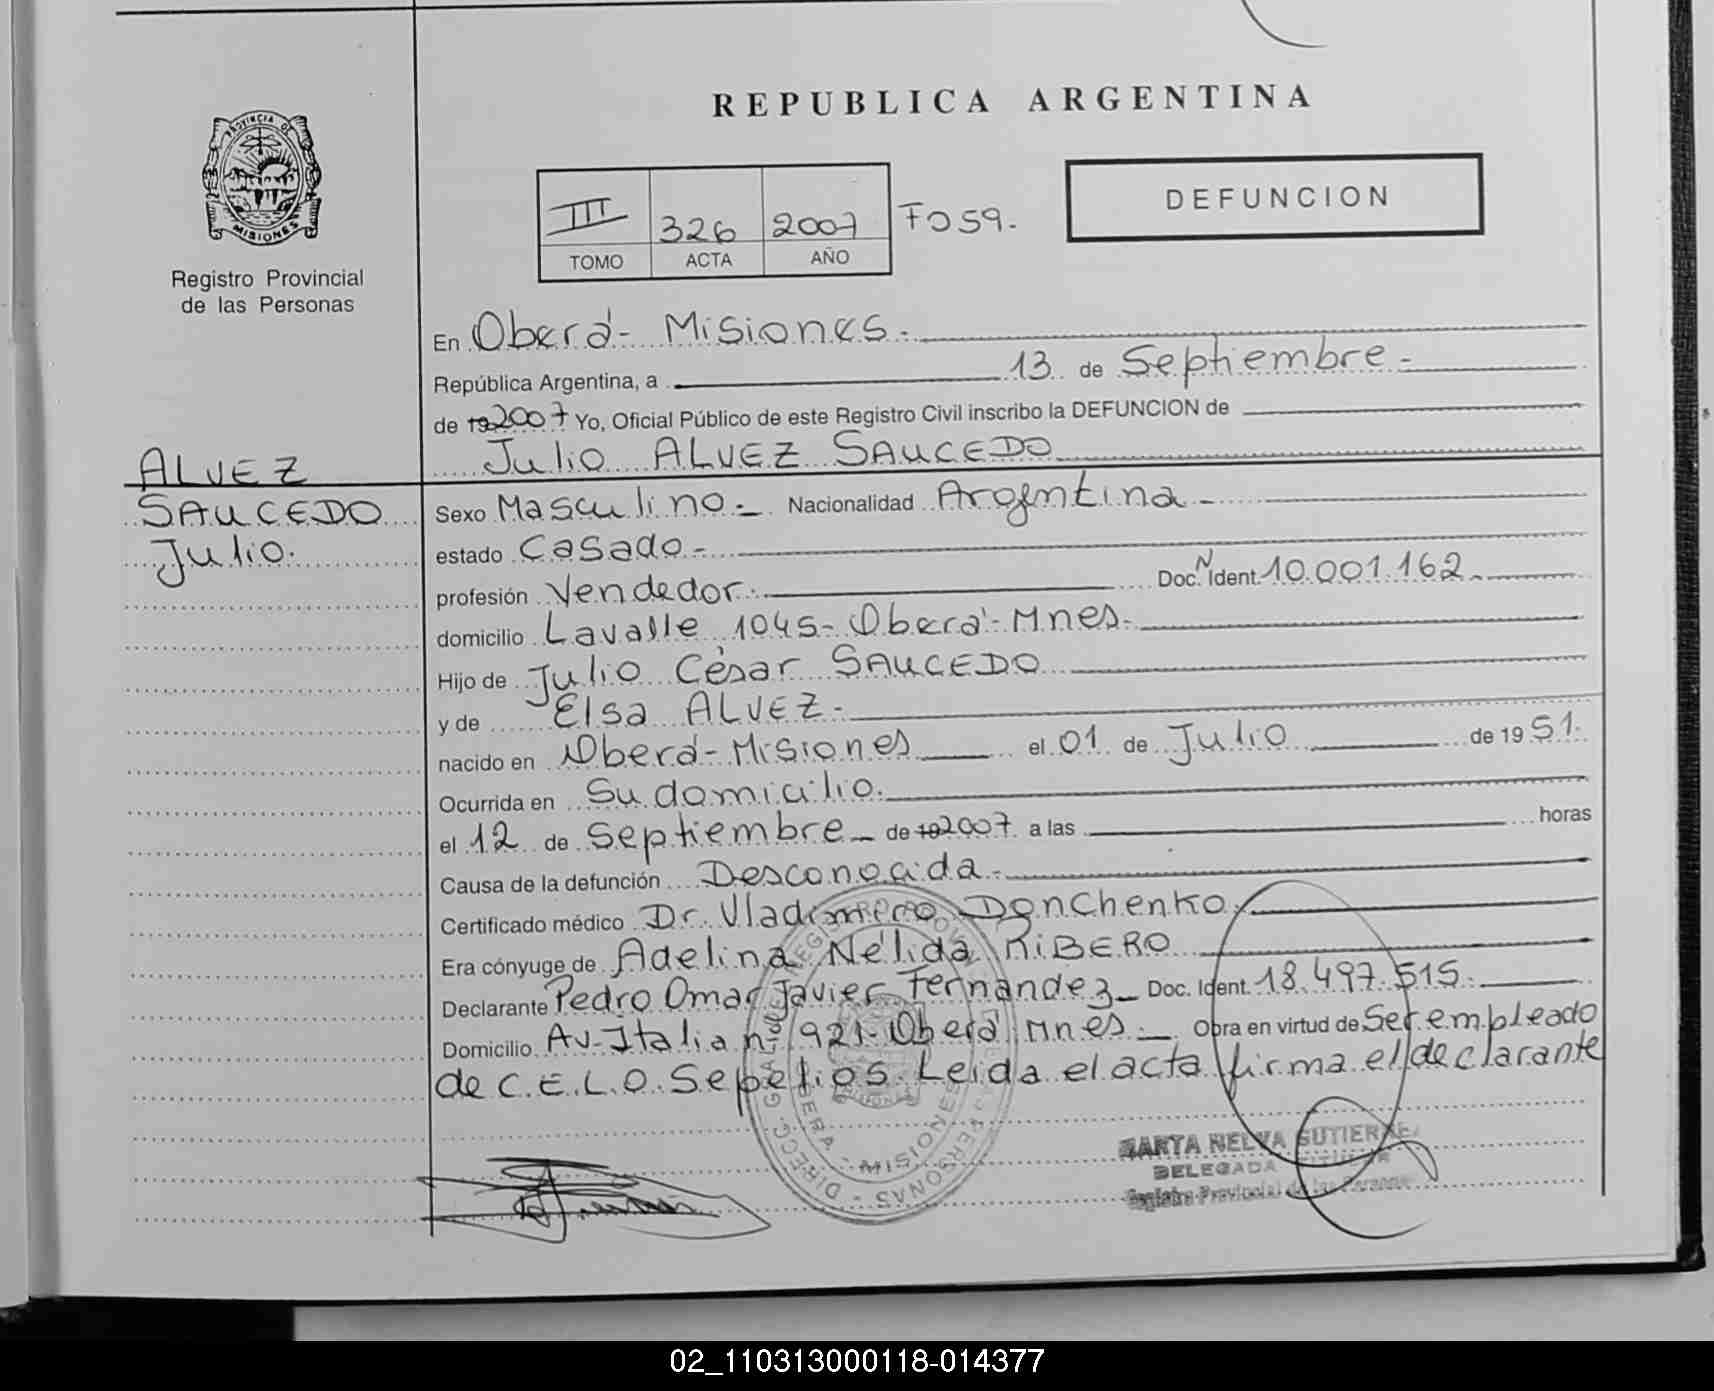 REPUBLICA ARGENTINA
PROVINCIA DE
MISIONES
Registro Provincial
de las Personas
III 326 2007 Fº 59.
TOMO ACTA AÑO
DEFUNCION
En Oberá - Misiones.
República Argentina, a 13 de Septiembre -
de 19 2007 Yo, Oficial Público de este Registro Civil inscribo la DEFUNCION de
Julio ALVEZ SAUCEDO
ALVEZ
SAUCEDO
Julio.
Sexo Masculino.- Nacionalidad Argentina -
estado Casado -
profesión Vendedor. Doc. N Ident. 10.001.162
domicilio Lavalle 1045 - Oberá - Mnes.
Hijo de Julio César SAUCEDO
y de Elsa ALVEZ -
nacido en Oberá - Misiones el 01 de Julio de 19 51.
Ocurrida en Su domicilio.
el 12 de Septiembre de 19 2007 a las horas
Causa de la defunción Desconocida.-
Certificado médico Dr. Vladimiro DONCHENKO.
Era cónyuge de Adelina Nélida RIBERO
Declarante Pedro Omar Javier Fernandez Doc. Ident. 18.497.515.
Domicilio Av. Italia nº 921 - Oberá Mnes. Obra en virtud de Ser empleado
de C.E.L.O. Sepelios. Leida el acta firma el declarante
MISIONES
PERSONAS - DIRECC. GRAL.
DELEGADA
Registro Provincial de las Personas
02_110313000118-014377